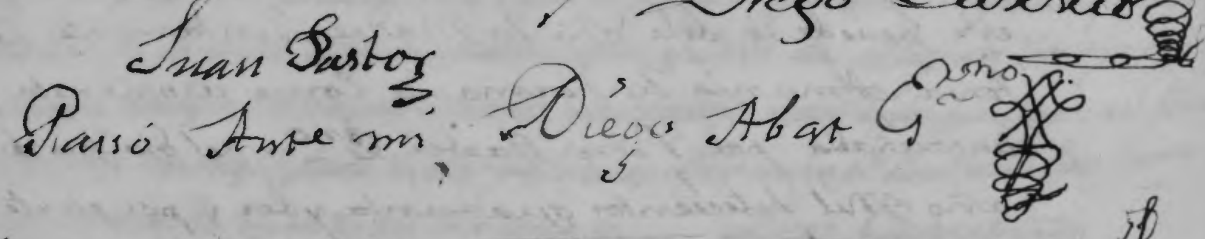 Diego
Juan Pastor
Passó Ante mi Diego Abat Essno